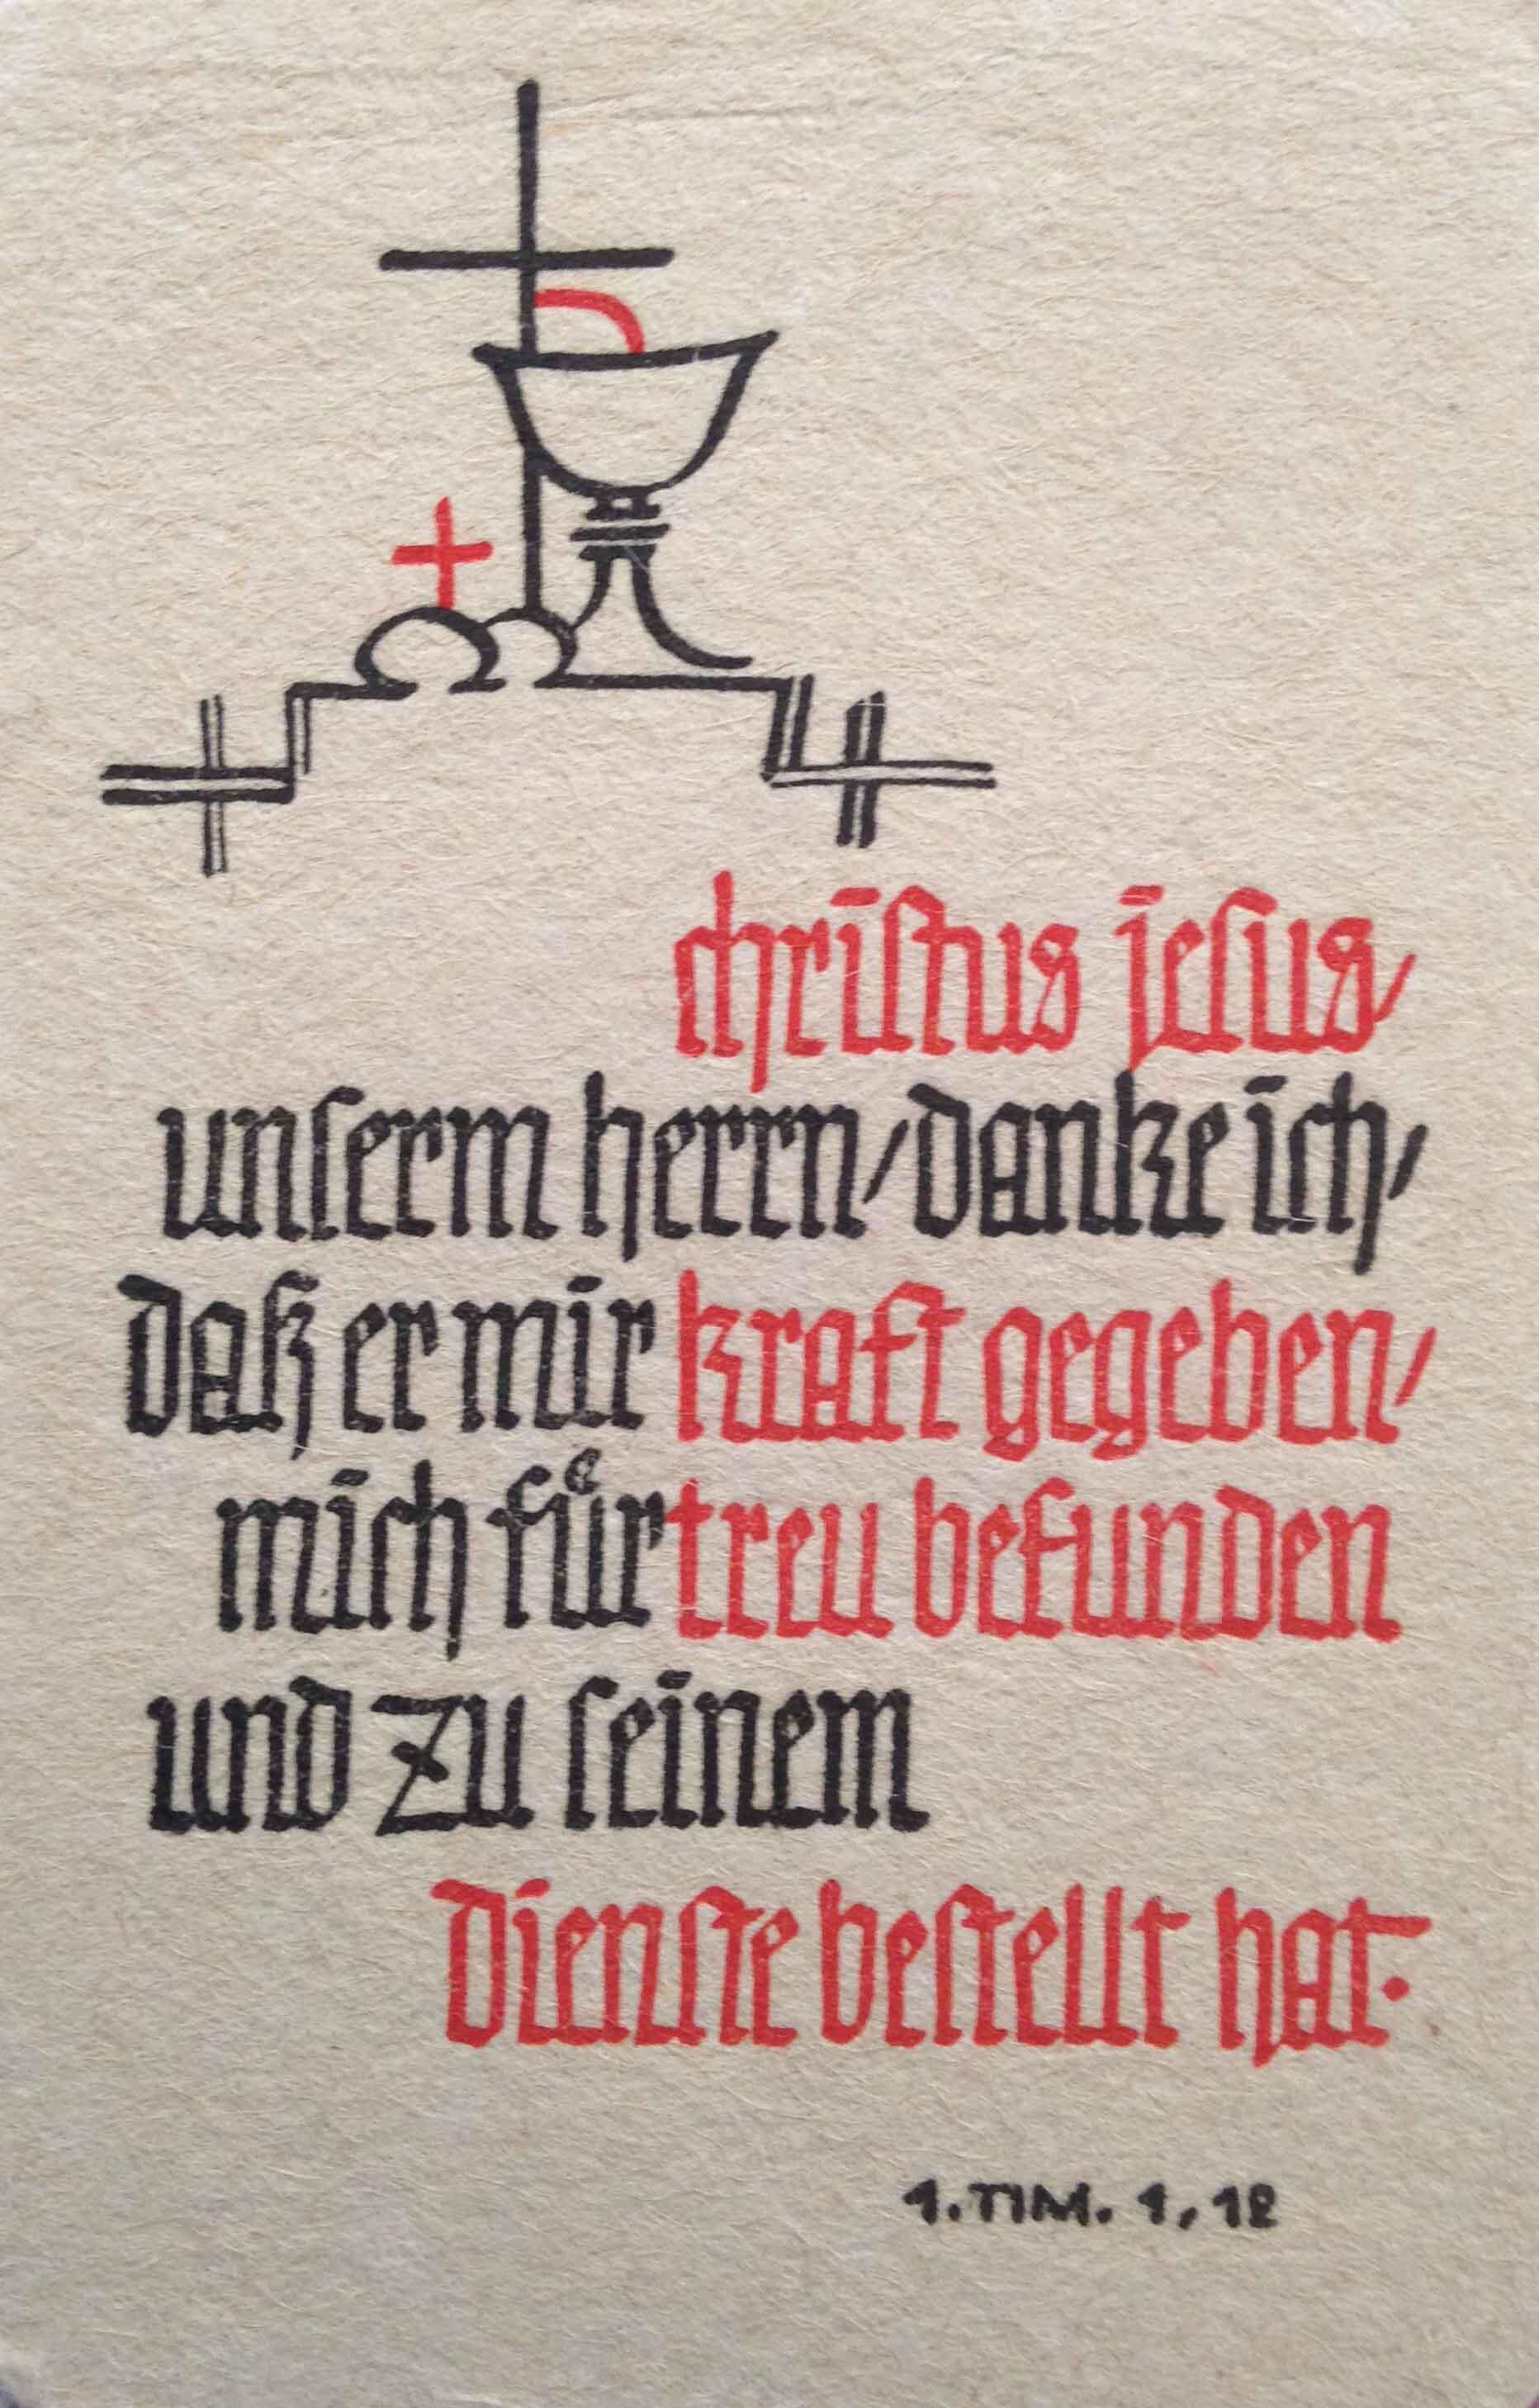 christus jesus/
unserm herrn/danke ich/
daß er mir kraft gegeben/
mich für treu befunden
und zu seinem
dienste bestellt hat.
1. TIM. 1, 12